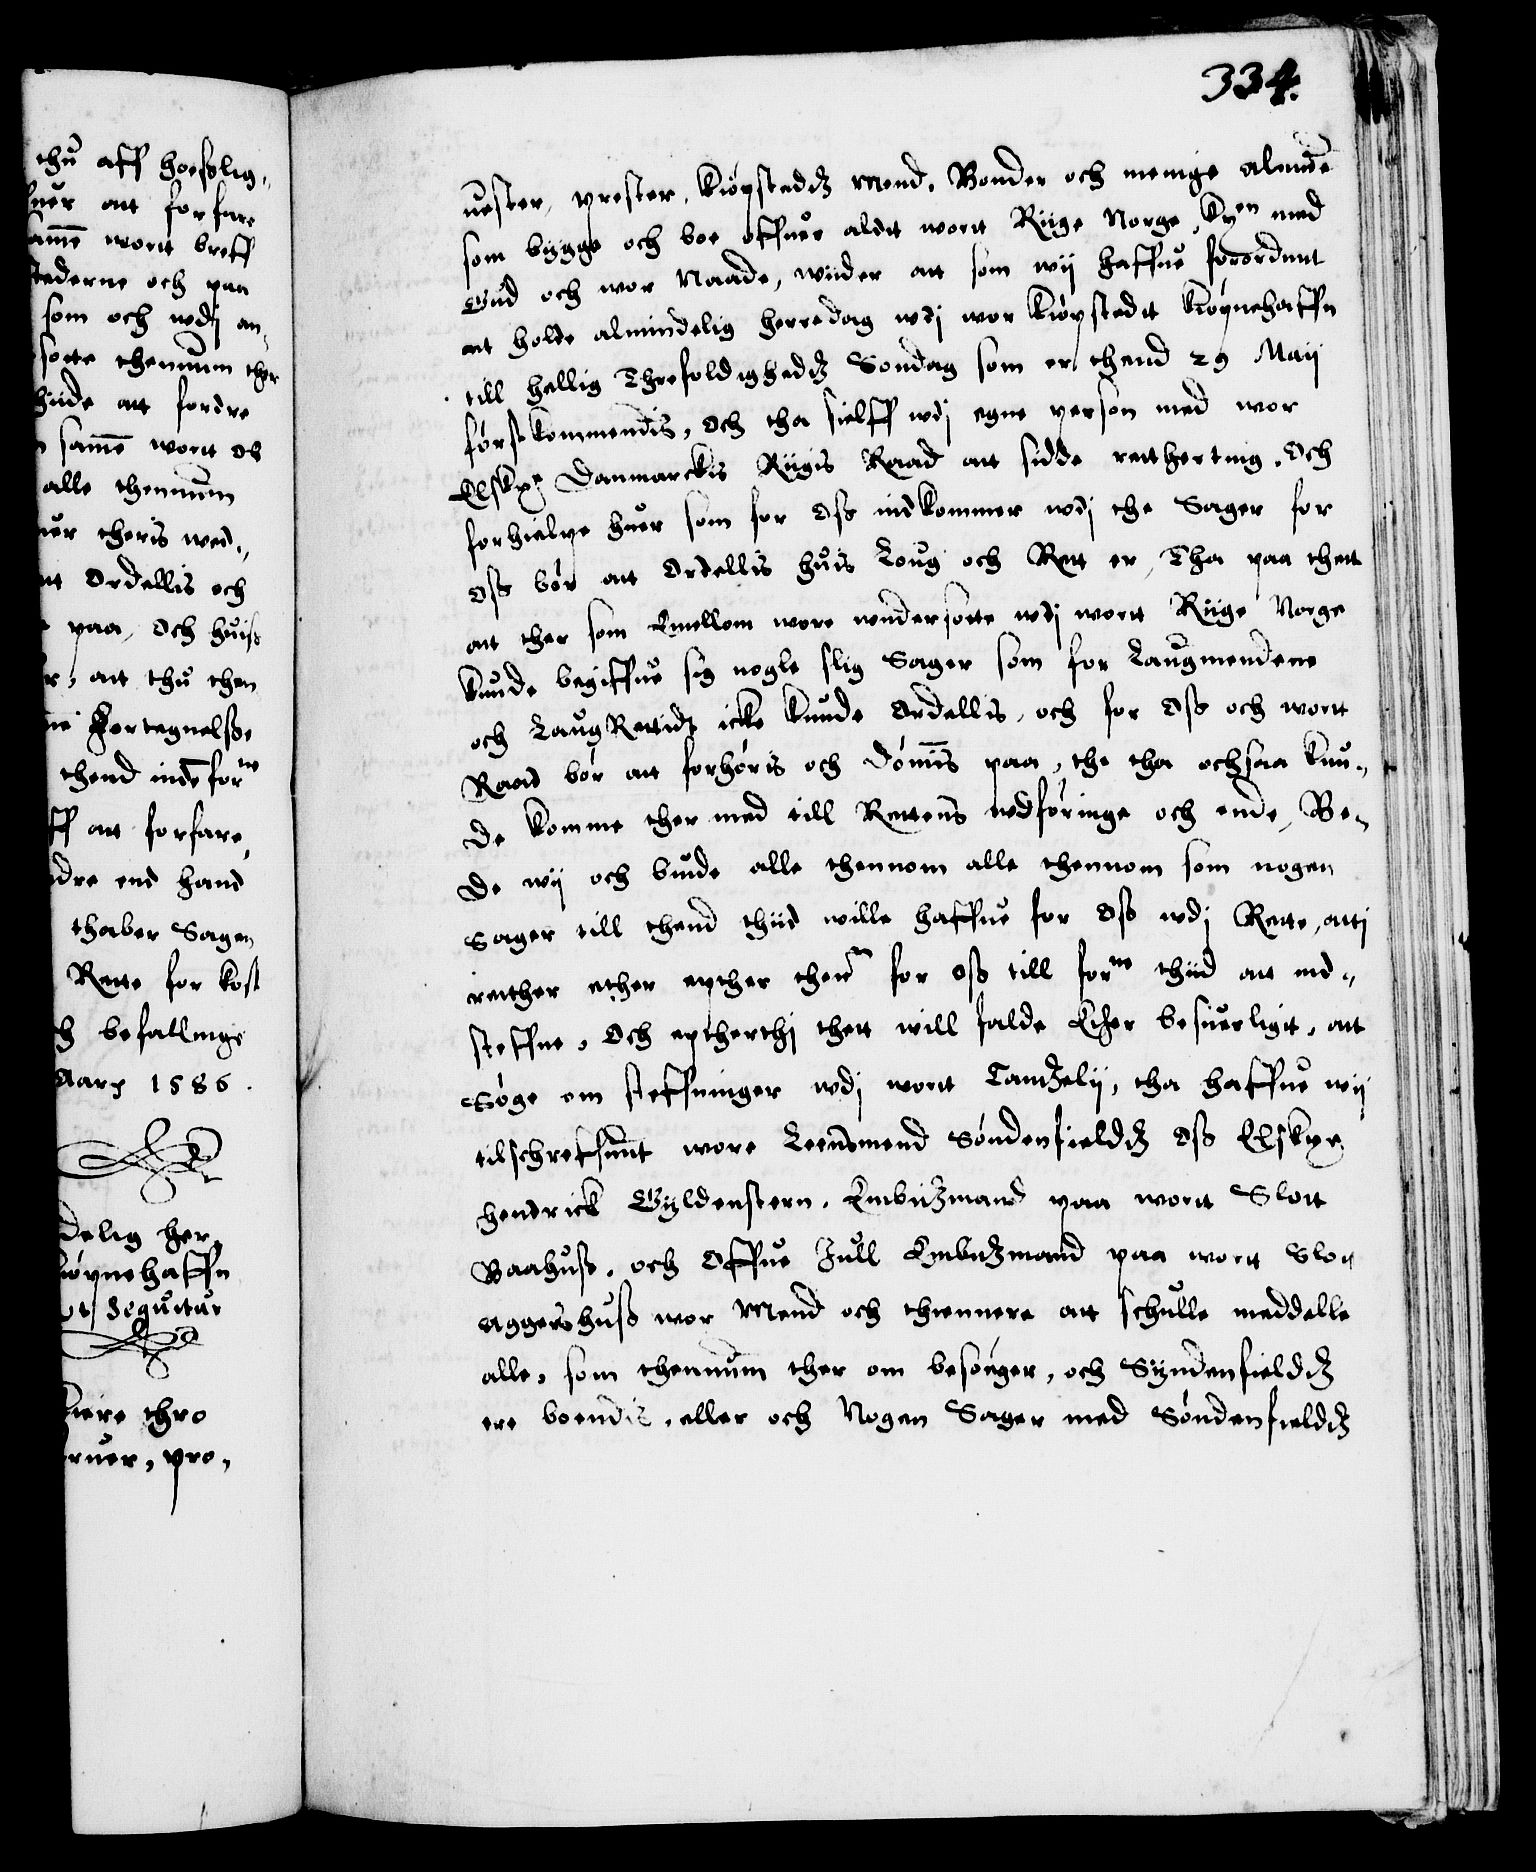 thu aff høeslig¬
huer att forfare
samē wortt breff
stederne och paa
som och wdj an¬
sotte thennum ther
hiide att fordre
samē wortt ob
alle thennum
uer theris wed¬
att Ordellis och
paa, Och huiss
r, att thu then
ne Fortegnelsse
thend inde forne
ff att forfare,
dre end hand
thaber Sagen
Rette for kost
h befallinge
Aarꝭ 1586.
delig her¬
iøpnehaffn
vt seguitur
kiere thro
ruer, pro¬
334.
uester, prester, Kiøpstedtz Mend, Bønder och menige almue
som bygge och boe offuer aldtt wortt Riige Norge, Kyen med
Gud och wor Naade, wiider att som wij haffue forordnet
att holde almindelig herredag wdj wor Kiøpstedtt Kiøpnehaffn
till hellig Threfoldighedtz Søndag som er thend 29 Maij
førstkommendis, Och tha sielff wdj egne person med wor
Elskꝭ Danmarckis Riigis Raad att sidde retterting, Och
forhielpe huer som for Oss indkommer wdj the Sager for
Oss bør att Ordellis huis Loug och Rett er, Tha paa thett
att ther som Emellom wore wndersotte wdj wortt Riige Norge
kunde begiffue sig nogle slig Sager som for Laugmendene
och LaugRettidt icke kunde Ordellis, och for Oss och wortt
Raad bør att forhøris och dømis paa, the tha ochsaa kun¬
de komme ther med till Rettens wdføringe och ende, Be¬
de wij och biude alle thennom alle thennom som nogen
Sager till thend thiid wille haffue for Oss wdj Rette, attj
retther ether epther thenn for oss till forne thiid att ind¬
steffne, Och eptherthj thett will falde Ether besuerligt, att
Søge om steffninger wdj wortt Cantzelij, tha haffue wij
tilschreffuitt wore Leensmend Søndenfieldtz Oss Elskꝭ
Hendrick Gyldenstern, Embitzmand paa wortt Slott
Baahuss, och Offue Jull Embitzmand paa wortt Slott
Aggershuss wor Mend och thiennere att schulle meddelle
alle, som thennum ther om besøger, och Syndenfieldtz
ere boendis, eller och Nogen Sager med Søndenfieldtz